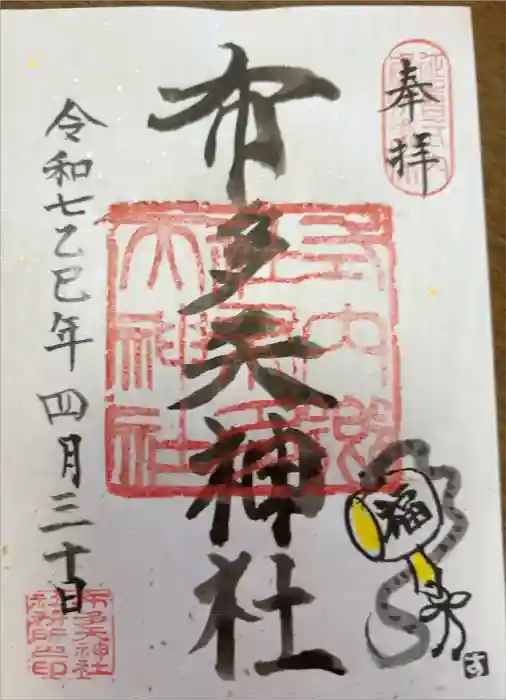 奉拝
布多天神社
令和七乙巳年 四月三十日
福
布多天神社